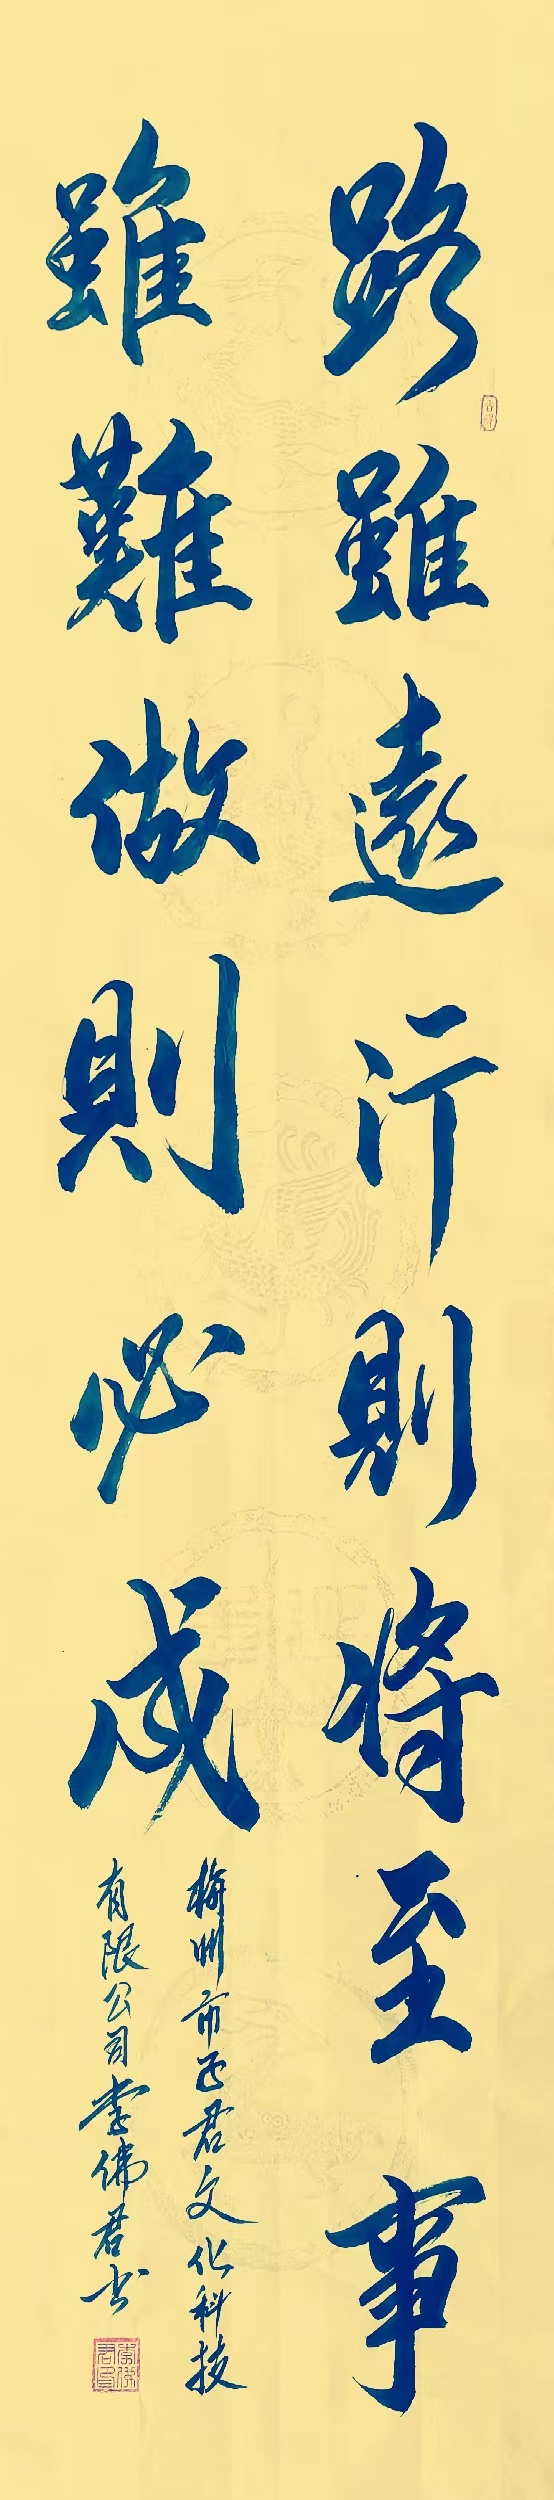 路雖遠行則將至事
雖難做則必成
梅州市正君文化科技
有限公司李佛君书